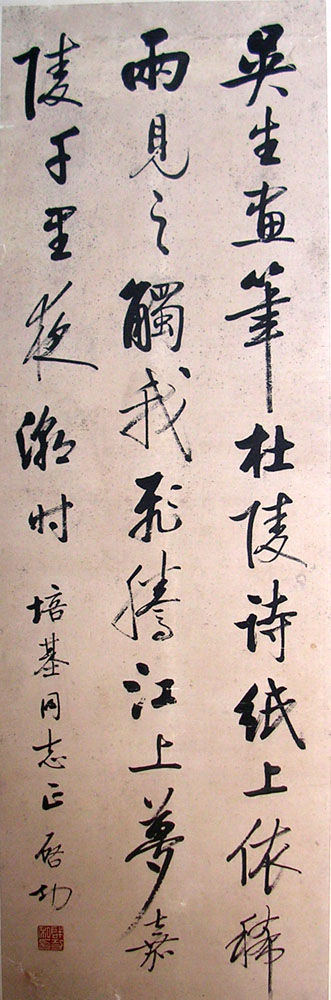 吴生画笔杜陵诗纸上依稀
两见之触我飞腾江上梦嘉
陵千里夜潮时
培基同志正 启功